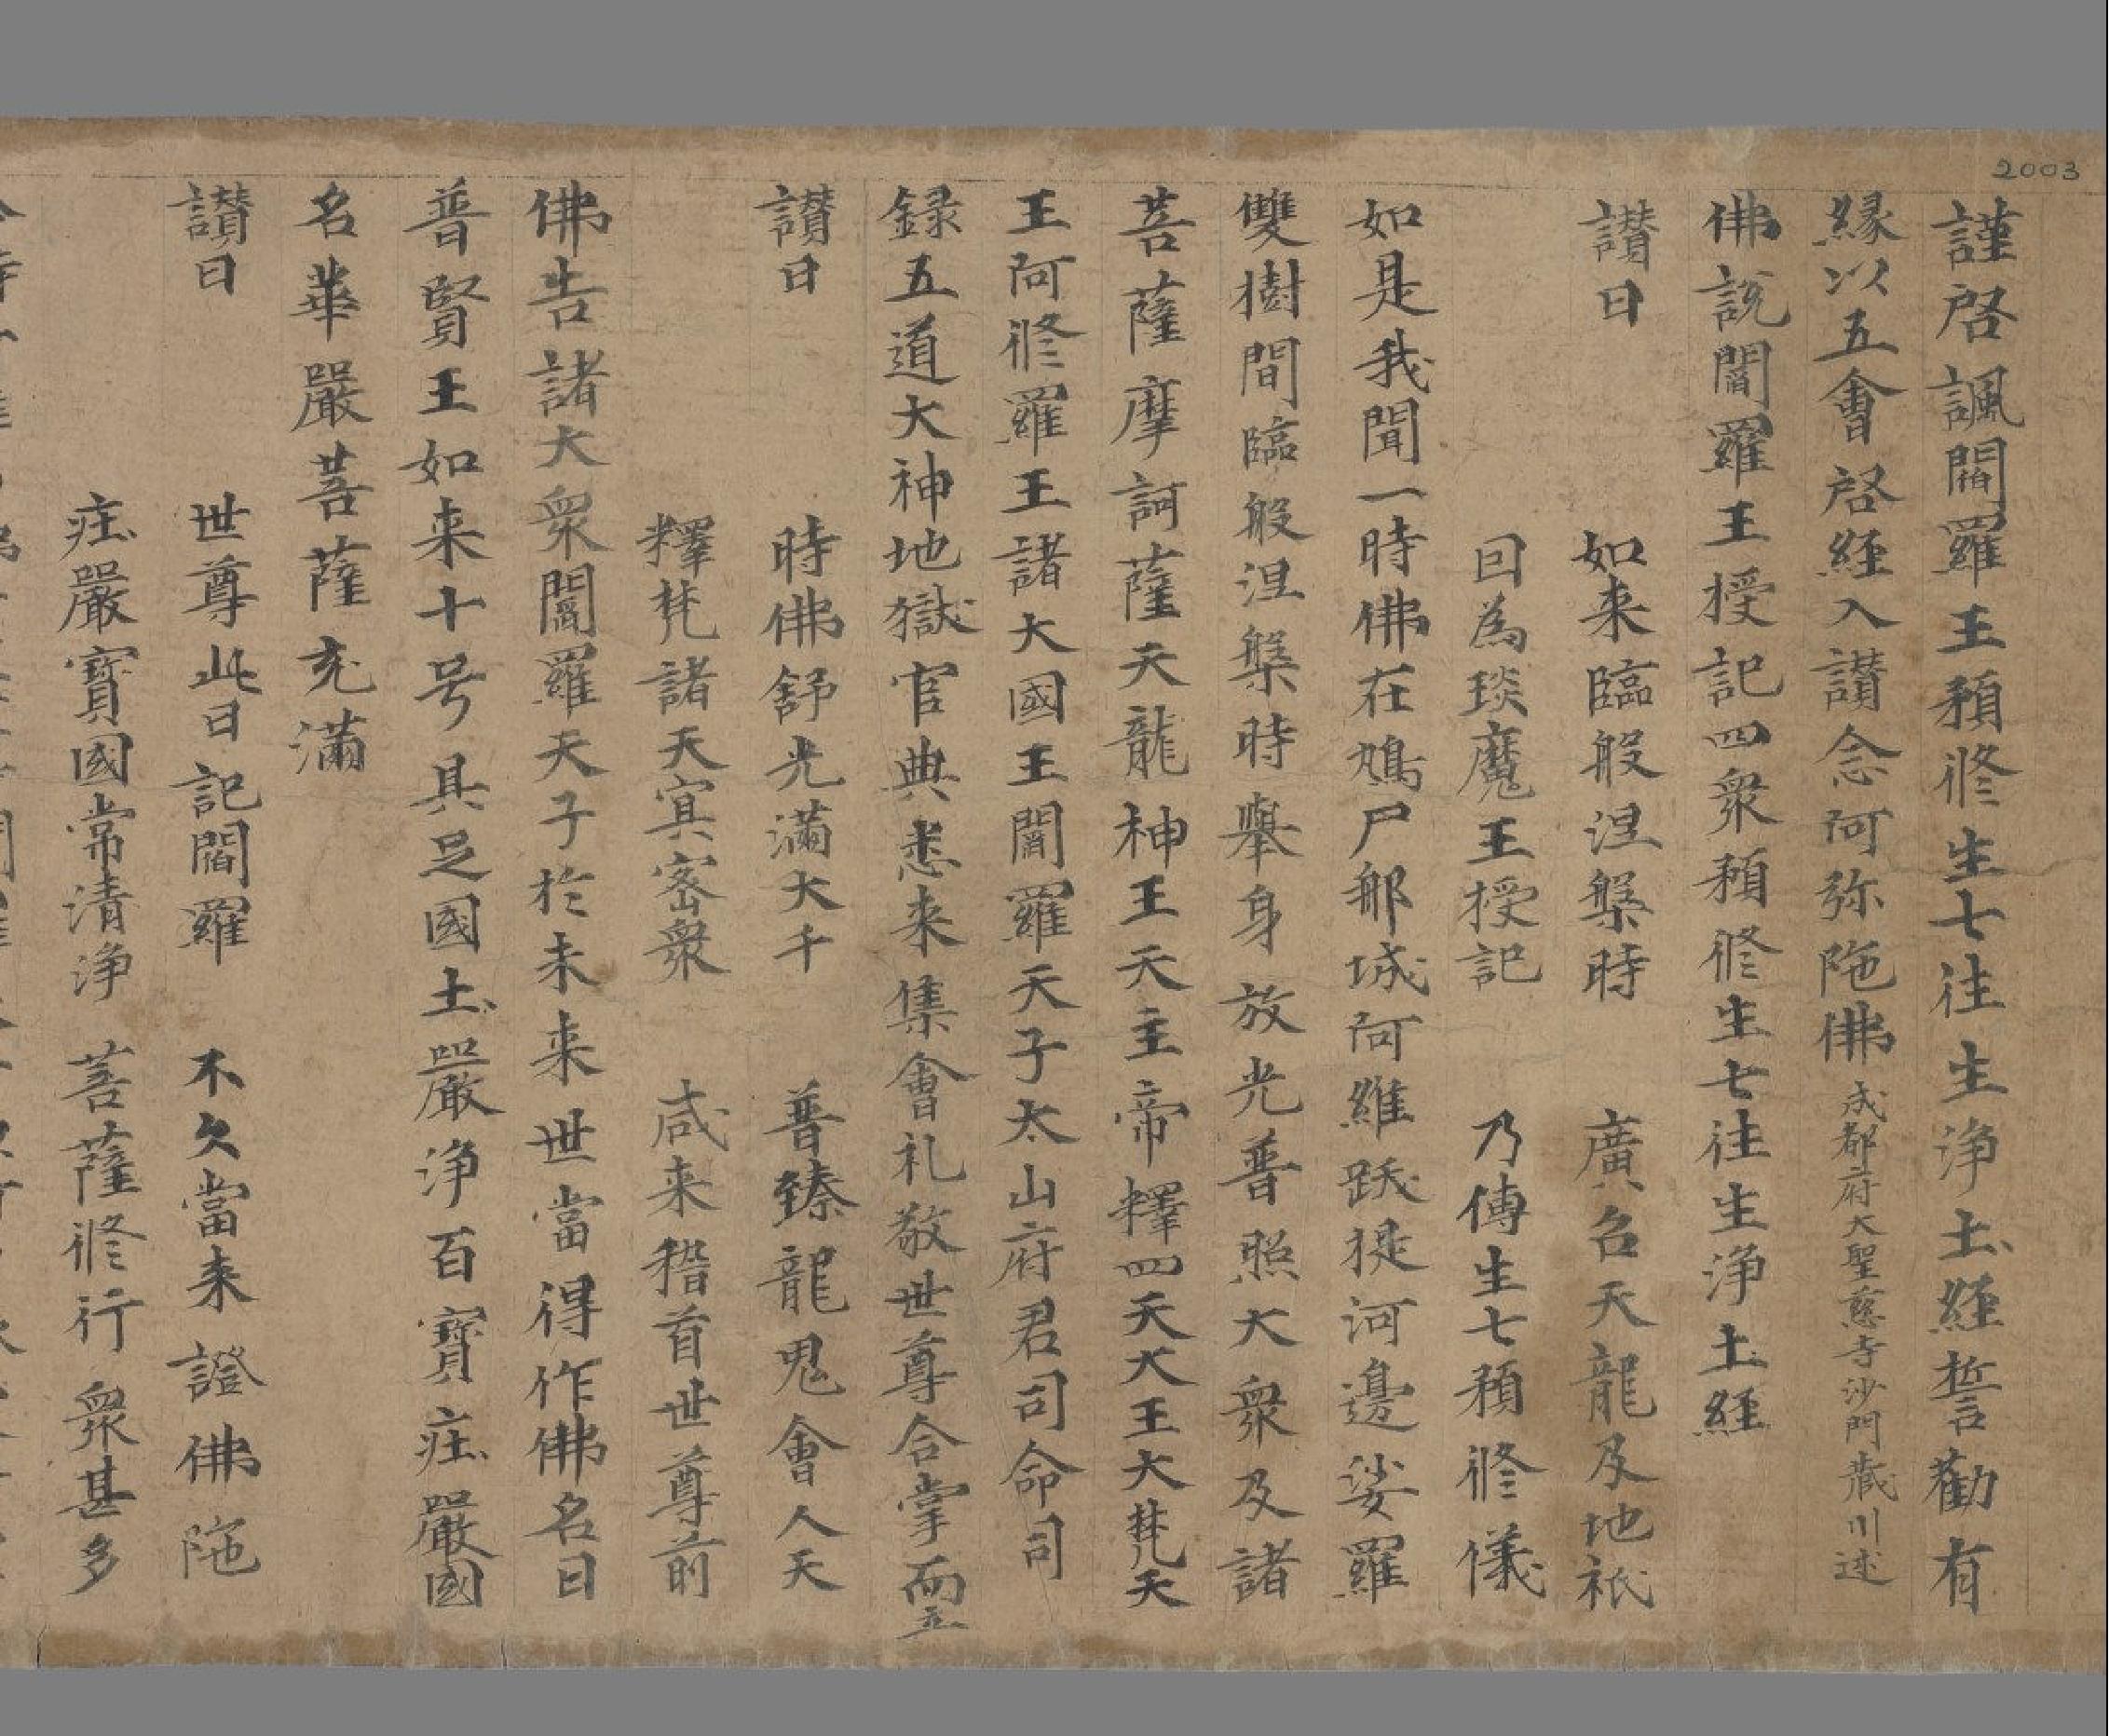 2003
謹啓諷閻羅王預修生七往生浄土經誓勸有
緣以五會啓經入讃念阿弥陁佛成都府大聖慈寺沙門藏川述
佛說閻羅王授記四衆預修生七往生浄土經
讃曰 如来臨般涅槃時 廣召天龍及地祇
因為琰魔王授記 乃傳生七預修儀
如是我聞一時佛在鳩尸那城阿維跋提河邊娑羅
雙樹間臨般涅槃時舉身放光普照大衆及諸
菩薩摩訶薩天龍神王天主帝釋四天大王大梵天
王阿修羅王諸大國王閻羅天子太山府君司命司
録五道大神地獄官典悉来集會礼敬世尊合掌而立
讃曰 時佛舒光滿大千 普臻龍鬼會人天
釋梵諸天冥密衆 咸来稽首世尊前
佛告諸大衆閻羅天子於未来世當得作佛名曰
普賢王如来十号具足國土嚴浄百寳疰嚴國
名華嚴菩薩充滿
讃曰 世尊此日記閻羅 不久當来證佛陁
疰嚴寳國常清浄 菩薩修行衆甚多